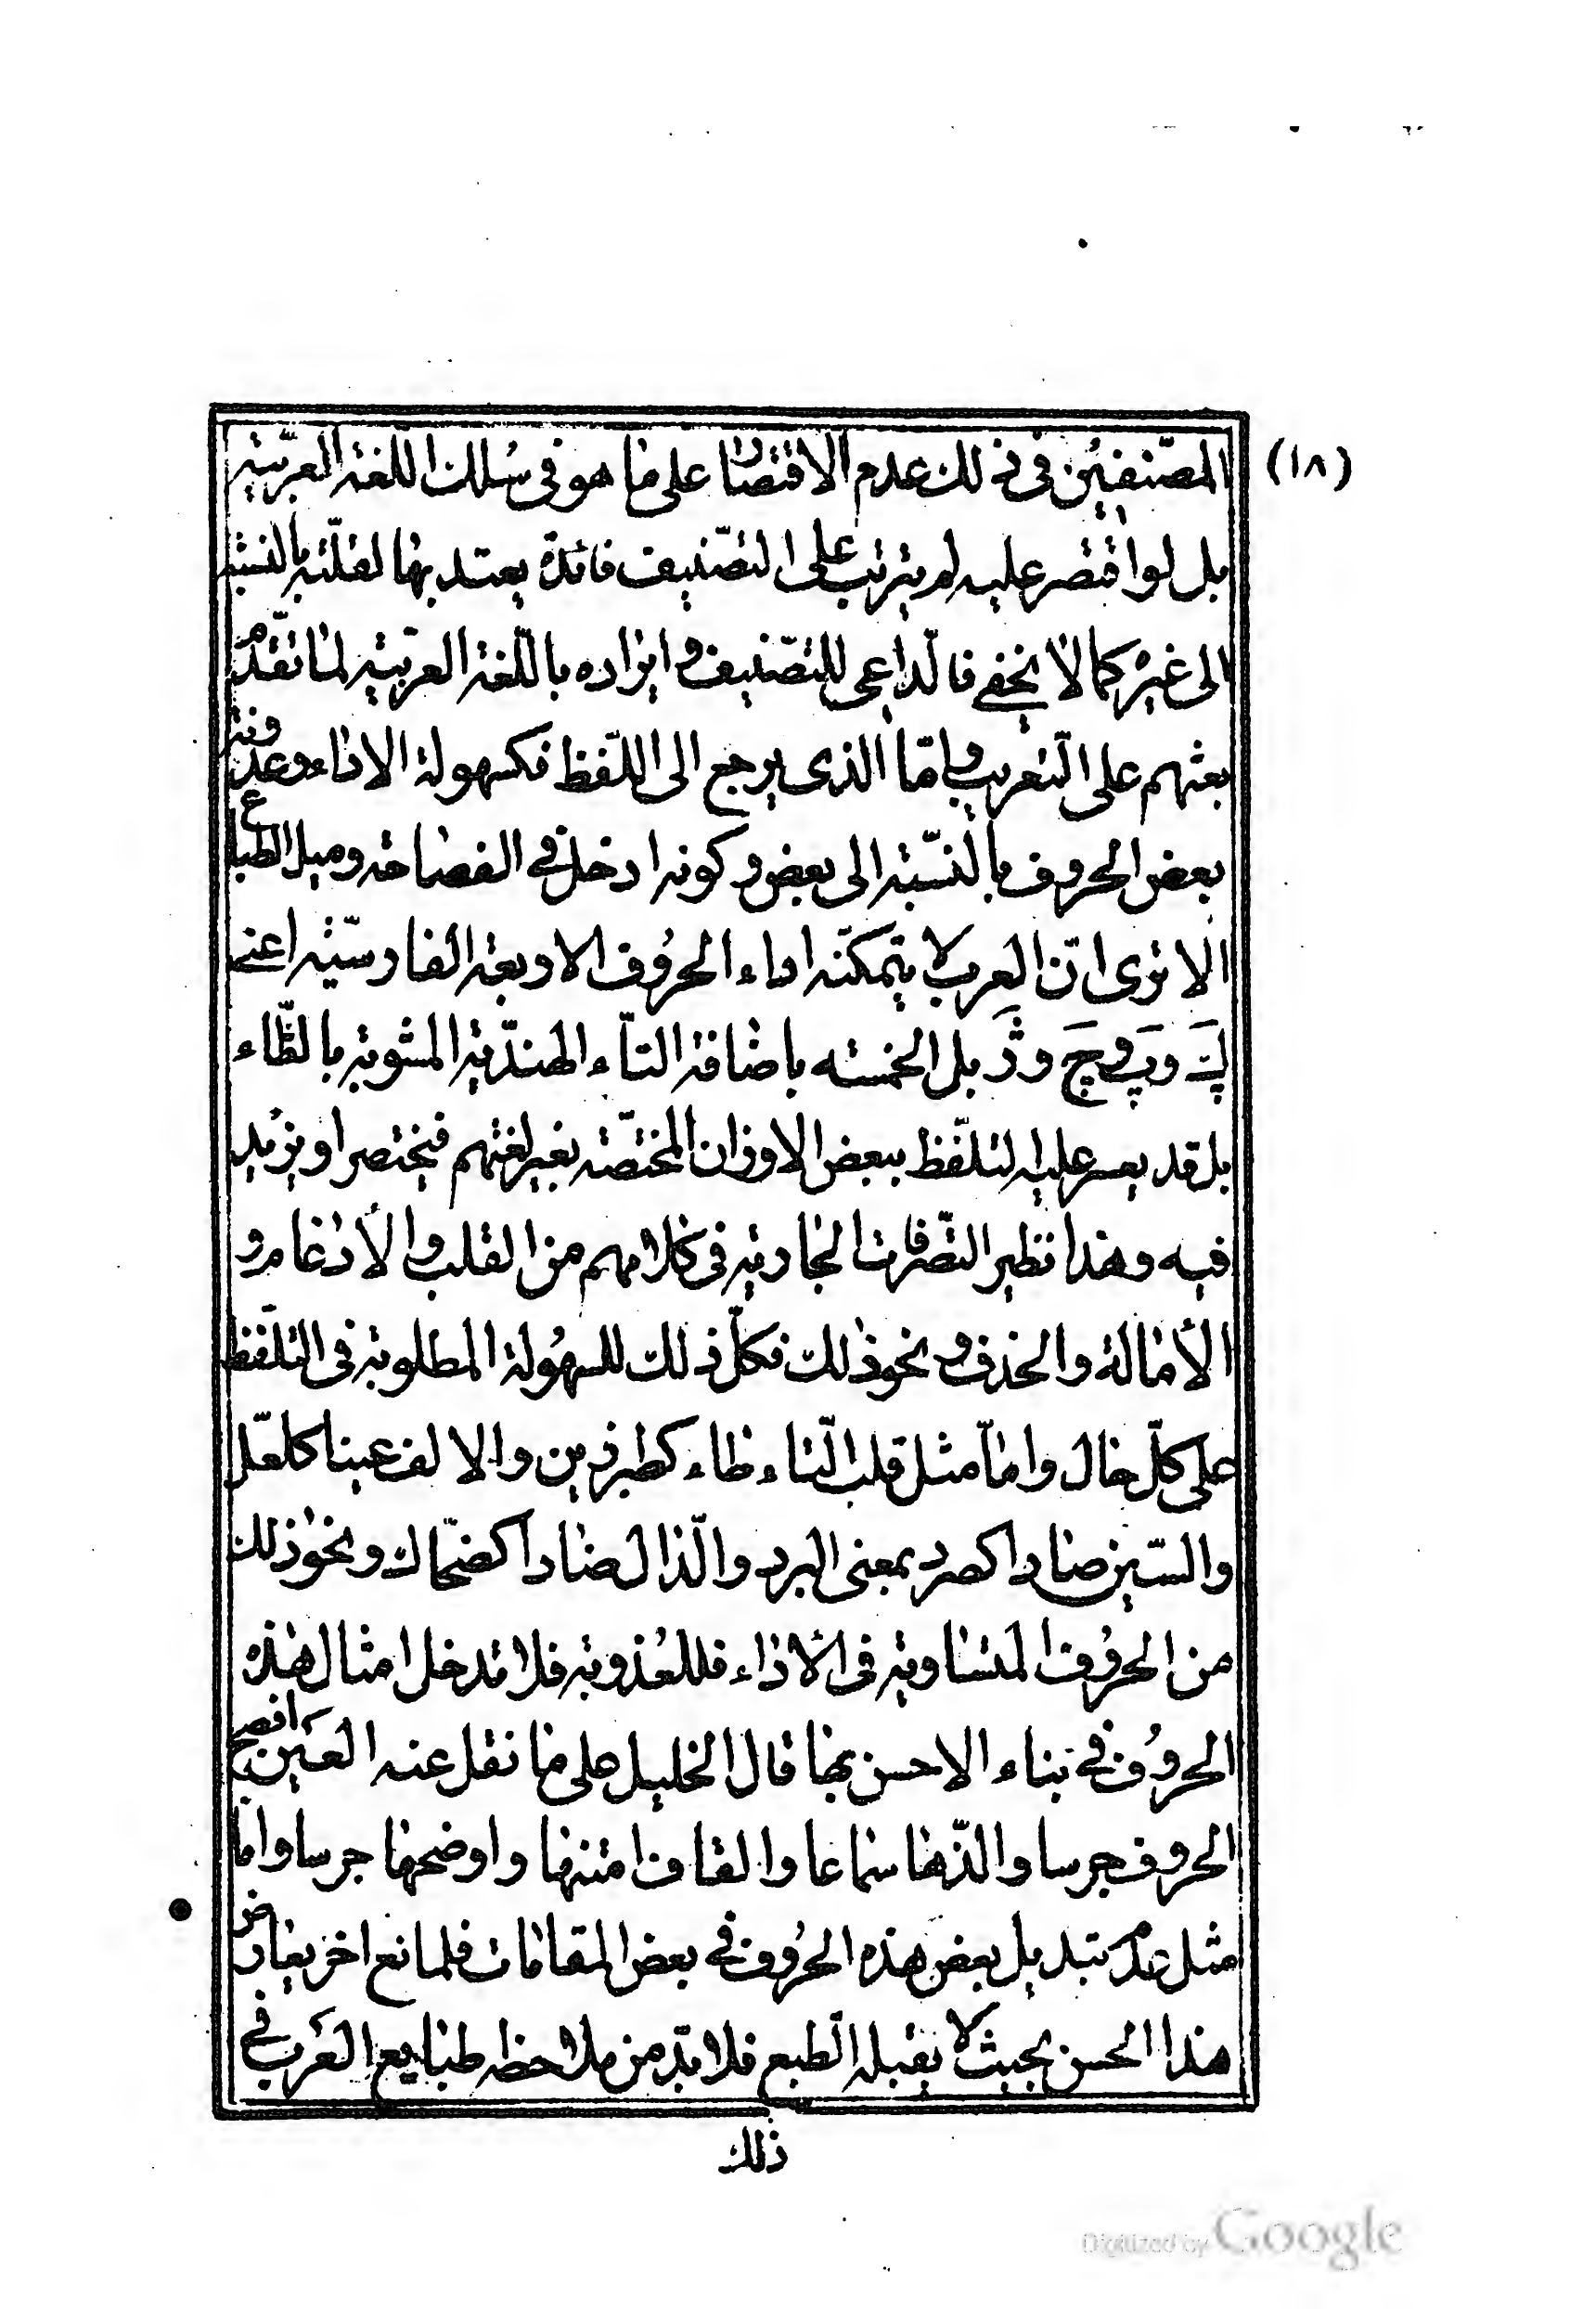 (١٨)
المصّنفين فى ذلك عدم الاقتصار على ما هو فى سلك اللّغة العربّية
بل لو اقتصر عليه لم يترتب على التصّنيف فائدة يعتد بها لقلّته بالنسبة
الى غيره كما لا يخفى فالّداعى للتصّنيف و ايراده باللّغة العربّية لما تقدّم
بعثهم على التّعريب و امّا الذى يرجع الى اللّفظ فكسهولة الاداء وعذوبته
بعض الحروف بالنسّبة الى بعض و كونه ادخل فى الفصاحة وميل الطباع
الا ترى انّ العرب لا يتمكّنه اداء الحروف الاربعة الفارسيّة اعنى
پَ وپَ وچَ وژَ بل الخمسه باضافة التّاء الهندّية المشوبة بالطّاء
بل قد يعسر عليه التلفّظ ببعض الاوزان المختصّة بغير لغتهم فيختصر او يزيد
فيه وهذا نظير التصّرفات الجارية فى كلامهم من القلب و الأدغام و
الأمالة والحذف و نحو ذلك فكلّ ذلك للسهولة المطلوبة فى التلفّظ
على كلّ حال و امّا مثل قلب التّاء طاء كطبرزين والالف عينا كلعّل
والسّين صادا كصرد بمعنى البرد والّذال ضادا كضحّاك و نحو ذلك
من الحروف المتساوية فى الأداء فللعذوبة فلا تدخل امثال هذه
الحروف فى بناء الا حسن بها قال الخليل على ما نقل عنه العين افصح
الحروف جرسا والذّها سماعا والقاف امتنها واوضحها جرسا واما
مثل عدم تبديل بعض هذه الحروف فى بعض المقامات فلمانع اخر يعارض
هذا الحسن بحيث لا يقبله الّطبع فلا بّد من ملاحظه طبايع العرب فى
ذلك
Digitized by Google